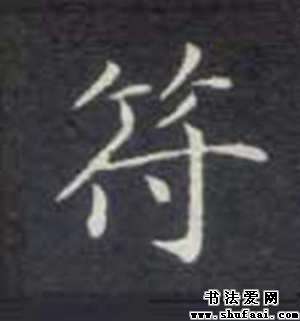 符
书法爱网
www.shufaai.com